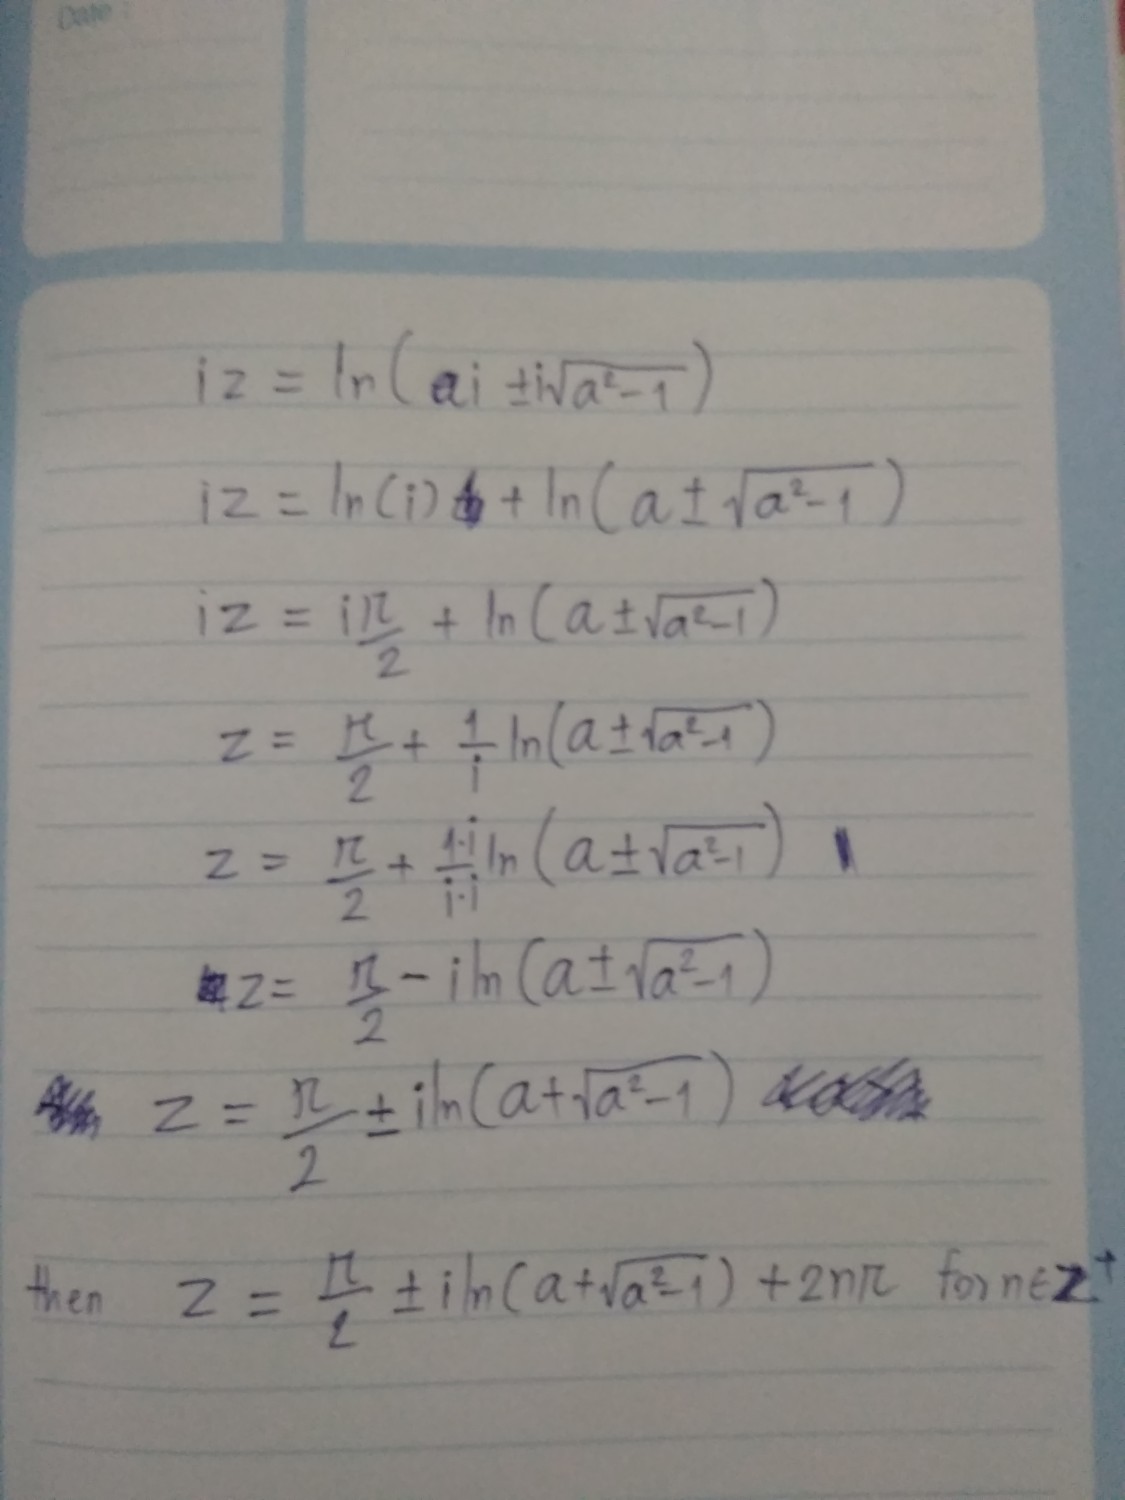 Date :
iz = ln(ai ± i√(a²-1))
iz = ln(i) + ln(a ± √(a²-1))
iz = iπ/2 + ln(a ± √(a²-1))
z = π/2 + 1/i ln(a ± √(a²-1))
z = π/2 + 1·i/i·i ln(a ± √(a²-1))
z = π/2 - i ln(a ± √(a²-1))
z = π/2 ± i ln(a + √(a²-1))
then z = π/2 ± i ln(a + √(a²-1)) + 2nπ for n ∈ Z⁺